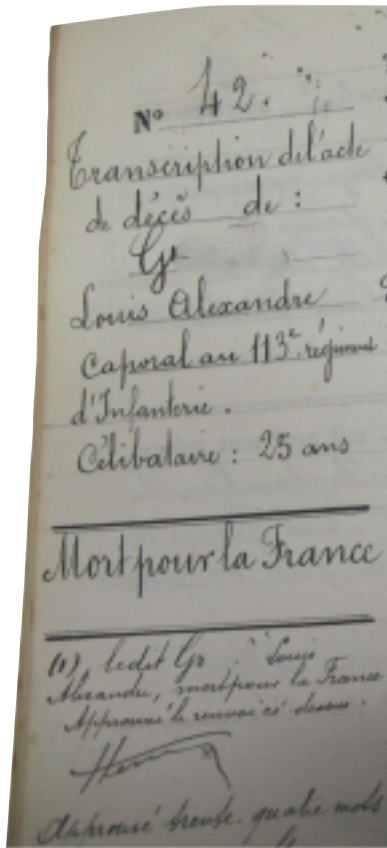 N° 42.
Transcription de l'acte
de décès de :
G
Louis Alexandre
Caporal au 113e régiment
d'Infanterie.
Célibataire : 25 ans
Mort pour la France
(1) ledit G Louis
Alexandre, mort pour la France
Approuvé le renvoi ci-dessus.
Approuvé trente-quatre mots